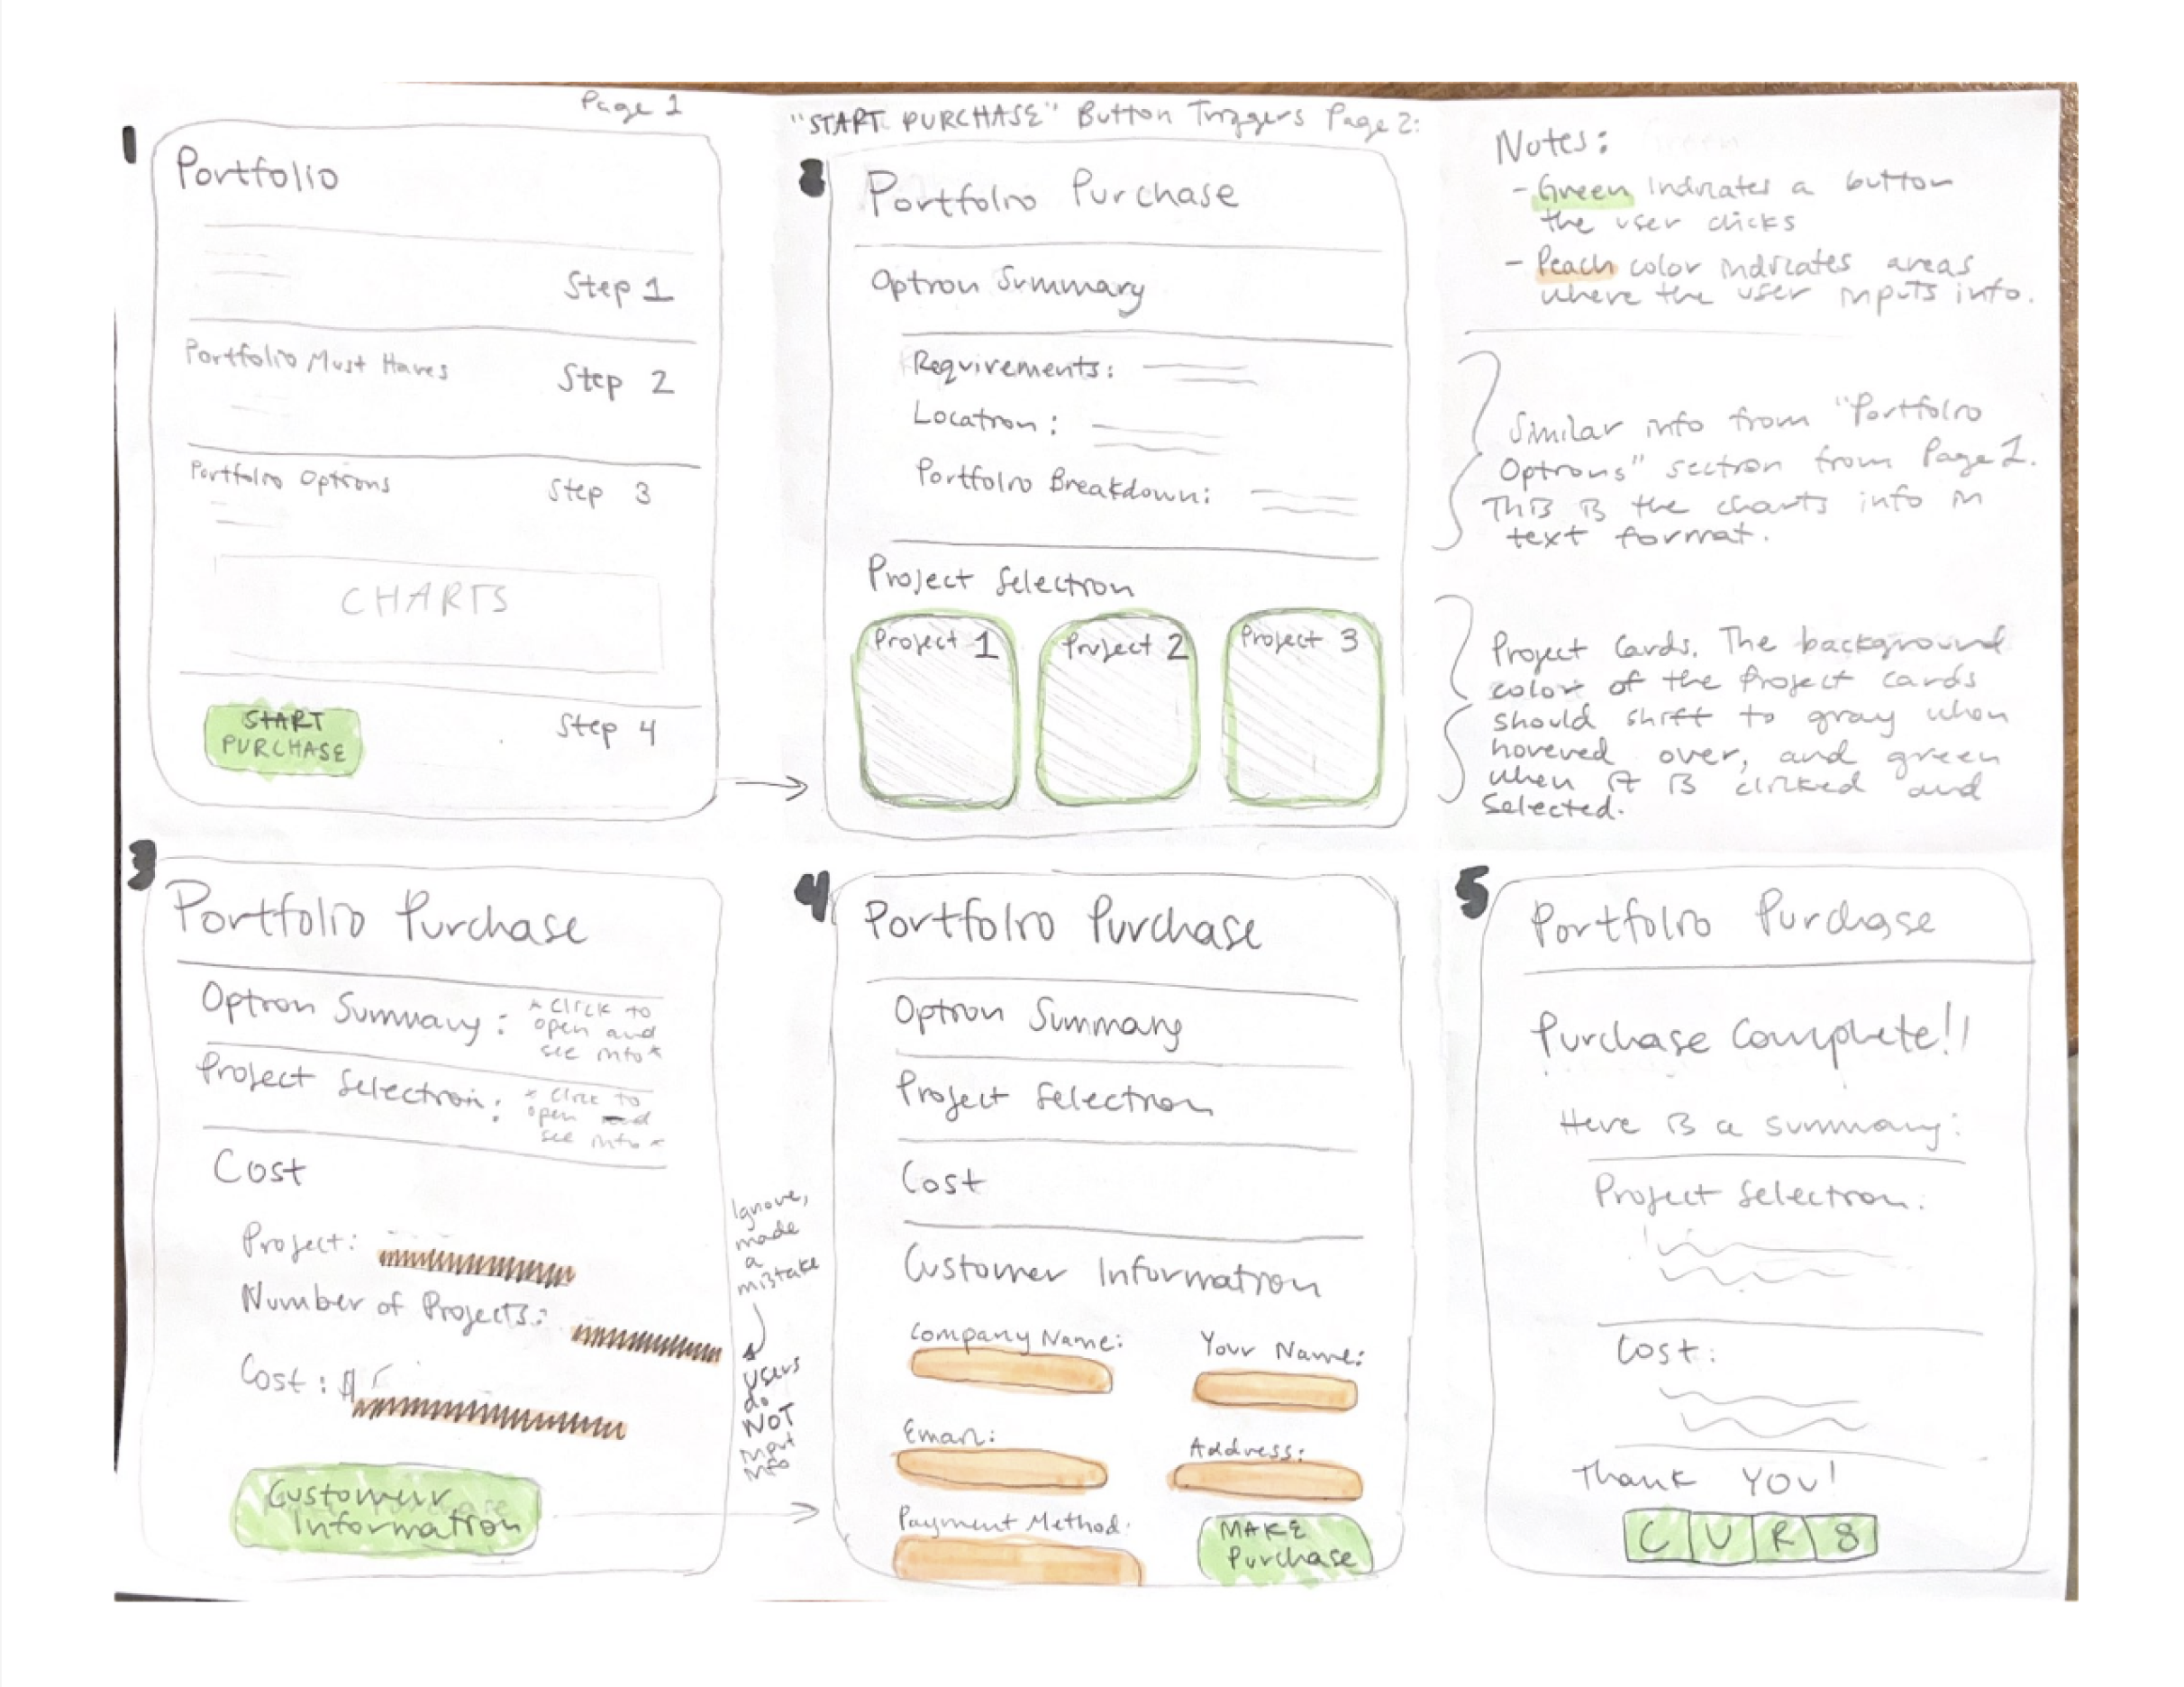 Page 1
1
Portfolio
Step 1
Portfolio Must Haves
Step 2
Portfolio Options
Step 3
CHARTS
START
PURCHASE
Step 4
"START PURCHASE" Button Triggers Page 2:
2
Portfolio Purchase
Option Summary
Requirements:
Location:
Portfolio Breakdown:
Project Selection
Project 1
Project 2
Project 3
Notes:
- Green indicates a button
the user clicks
- Peach color indicates areas
where the user inputs info.
Similar info from "Portfolio
Options" section from Page 1.
This is the charts info in
text format.
Project Cards. The background
color of the Project cards
should shift to gray when
hovered over, and green
when it is clicked and
selected.
3
Portfolio Purchase
Option Summary:
* click to
open and
see info *
Project Selection:
* click to
open and
see info *
Cost
Project:
Number of Projects:
Cost: $
Customer
Information
Ignore,
made
a
mistake
users
do
NOT
input
info
4
Portfolio Purchase
Option Summary
Project Selection
Cost
Customer Information
Company Name:
Your Name:
Email:
Address:
Payment Method:
MAKE
Purchase
5
Portfolio Purchase
Purchase Complete!!
Here is a summary:
Project Selection:
Cost:
Thank YOU!
C U R 8